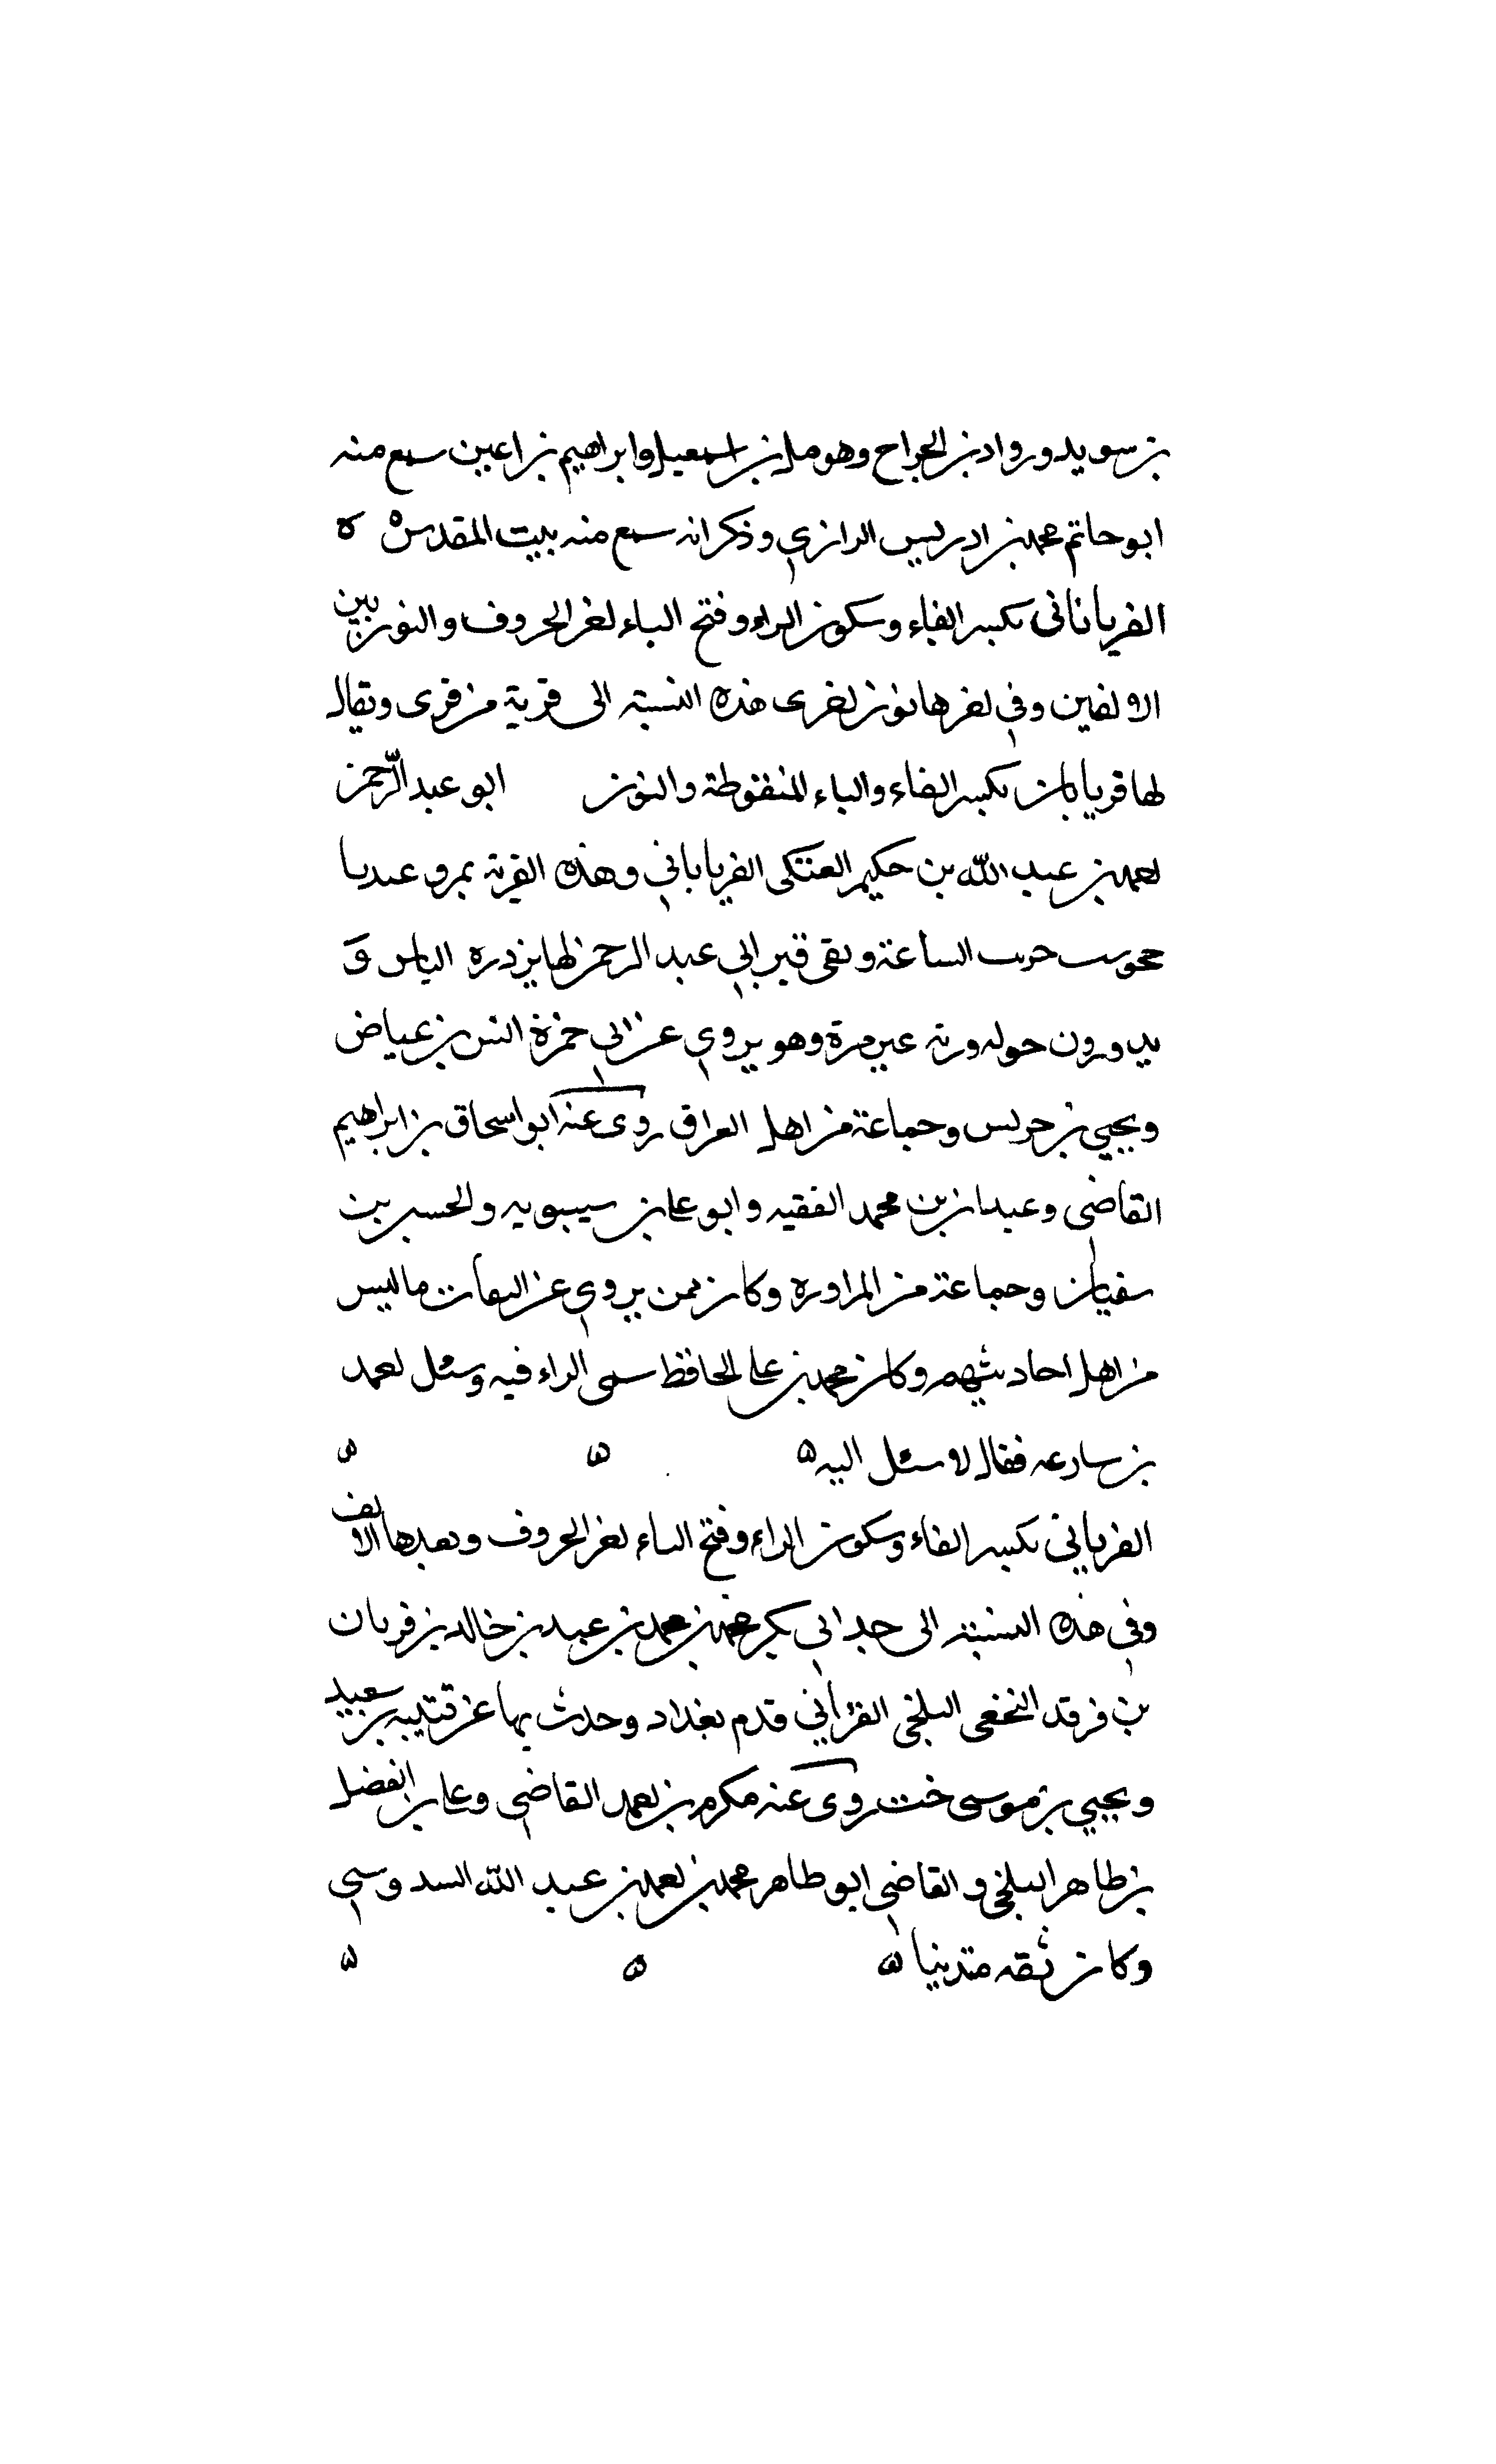 بن سويد ورواد بن الجراح وهومل بن اسمعيل وابراهيم بن اعين سمع منه
ابو حاتم محمد بن ادريس الرازي وذكر انه سمع منه ببيت المقدس ه ه
الفريانانى بكسر الفاء وسكون الراء وفتح الياء اخر الحروف والنون بين
الالفين وفي اخرها نون اخرى هذه النسبة الى قرية من قرى ويقال
لها فريانان بكسر الفاء والياء المنقوطة والنون ابو عبد الرحمن
احمد بن عبد الله بن حكيم العتكى الفرياناني وهذه القرية بمرو عندنا
خربت الساعة وبقى قبر ابي عبد الرحمن بها يزدره الناس و
يدورون حوله زرته غير مرة وهو يروي عن ابي حمزة انس بن عياض
ويحيي بن وجماعة من اهل العراق روى عنه ابو اسحاق بن ابراهيم
القاضي وعبدان بن محمد الفقيه وابو على بن سيبويه والحسن بن
سفيان وجماعة من المراوزه وكان ممن يروي عن الثقات ماليس
من اهل احاديثهم وكان محمد بن على الحافظ سيئ الراء فيه وسئل احمد
بن عنه فقال لا سئل اليه ه ه ه
الفرياني بكسر الفاء وسكون الراء وفتح الياء اخر الحروف وبعدها الالف
وفي هذه النسبة الى جد ابي بكر محمد بن احمد بن عبيد بن خالد بن فريان
بن فرقد النخعى البلخى الفرياني قدم بغداد وحدث بها عن قتيبه بن سعيد
ويحيي بن موسى خت روى عنه مكرم بن احمد القاضي وعلى بن الفضل
بن طاهر البلخي والقاضي ابو طاهر محمد بن احمد بن عبد الله السدوسي
وكان ثقه متدينا ه ه ه